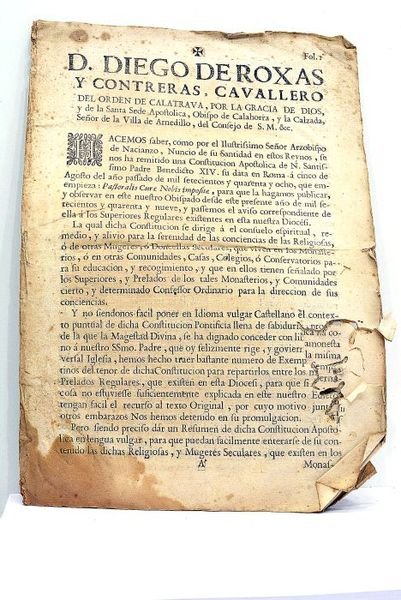 Fol. 1
D. DIEGO DE ROXAS
Y CONTRERAS, CAVALLERO
DEL ORDEN DE CALATRAVA, POR LA GRACIA DE DIOS,
y de la Santa Sede Apostolica, Obispo de Calahorra, y la Calzada,
Señor de la Villa de Arnedillo, del Consejo de S. M. &c.
HACEMOS saber, como por el Ilustrissimo Señor Arzobispo
de Nacianzo, Nuncio de su Santidad en estos Reynos, se
nos ha remitido una Constitucion Apostolica de N. Santis-
simo Padre Benedicto XIV. su data en Roma á cinco de
Agosto del año passado de mil setecientos y quarenta y ocho, que em-
pieza: Pastoralis Curæ Nobis impositæ, para que la hagamos publicar,
y observar en este nuestro Obispado desde este presente año de mil se-
tecientos y quarenta y nueve, y passemos el aviso correspondiente de
ella á los Superiores Regulares existentes en esta nuestra Diocesi.
La qual dicha Constitucion se dirige á el consuelo espiritual, re-
medio, y alivio para la serenidad de las conciencias de las Religiosas,
ó de otras Mugeres, ó Doncellas Seculares, que viven en los Monaste-
rios, ó en otras Comunidades, Casas, Colegios, ó Conservatorios pa-
ra su educacion, y recogimiento, y que en ellos tienen señalado por
los Superiores, y Prelados de los tales Monasterios, y Comunidades
cierto, y determinado Confessor Ordinario para la direccion de sus
conciencias.
Y no siendonos facil poner en Idioma vulgar Castellano el contex-
to puntual de dicha Constitucion Pontificia llena de sabiduria,
de la que la Magestad Divina, se ha dignado conceder con
no á nuestro SSmo. Padre, que oy felizmente rige, y govierna la misma
versal Iglesia, hemos hecho traer bastante numero de Exemp
tinos del tenor de dicha Constitucion para repartirlos entre los
Prelados Regulares, que existen en esta Diocesi, para que si
cosa no estuviesse suficientemente explicada en este nuestro Edicto
tengan facil el recurso al texto Original, por cuyo motivo, junto
otros embarazos Nos hemos detenido en su promulgacion.
Pero siendo preciso dár un Resumen de dicha Constitucion Aposto-
lica en lengua vulgar, para que puedan facilmente enterarse de su con-
tenido las dichas Religiosas, y Mugeres Seculares, que existen en los
A
Monas-